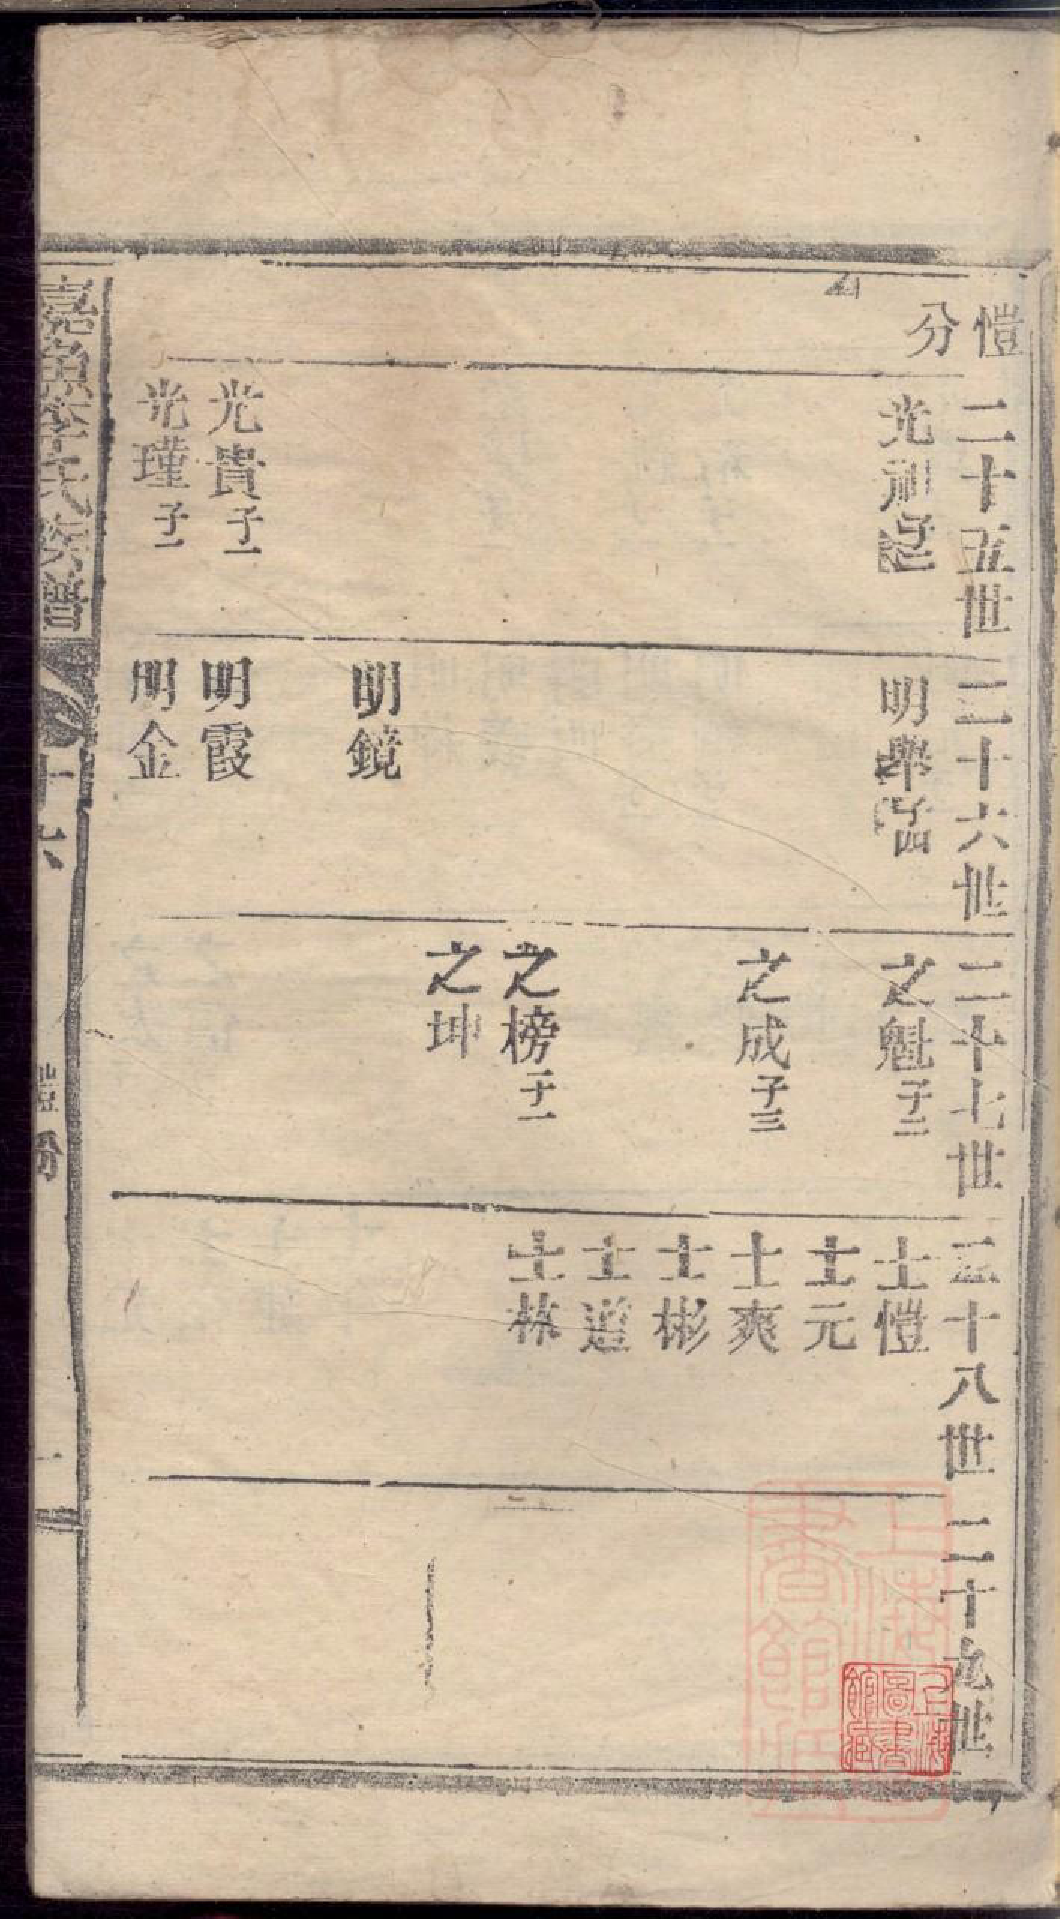 愷分
二十五世
光
光貴子一
光瑾子一
二十六世
明舉子四
明鏡
明霞
明金
二十七世
之魁子二
之成子三
之榜子一
之坤
二十八世
士愷
士元
士爽
士彬
士道
士林
二十九世
嘉魚李氏族譜
十六
愷分
上海圖書館藏
上海圖書館藏